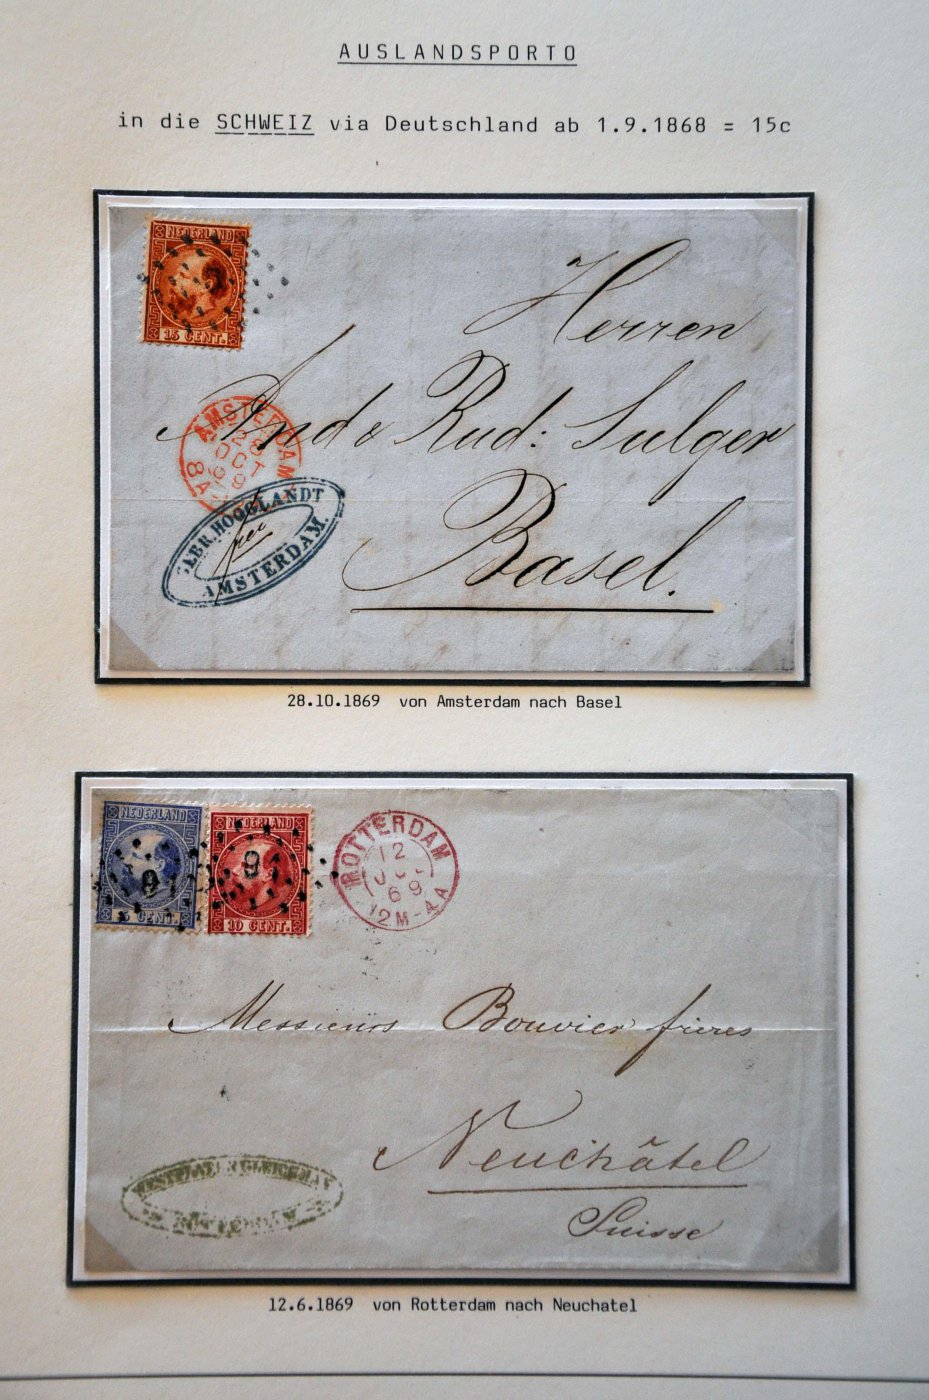 AUSLANDSPORTO
in die SCHWEIZ via Deutschland ab 1.9.1868 = 15c
NEDERLAND
15 CENT.
Herren
And & Rud: Sulger
Basel.
AMSTERDAM
28
OCT
69
8A
GEBR. HOOGLANDT
AMSTERDAM.
28.10.1869 von Amsterdam nach Basel
NEDERLAND
5 CENT.
NEDERLAND
10 CENT.
91
91
ROTTERDAM
12
69
12M-4A
Messieurs Bouvier frères
Neuchâtel
Suisse
ROTTERDAM
12.6.1869 von Rotterdam nach Neuchatel